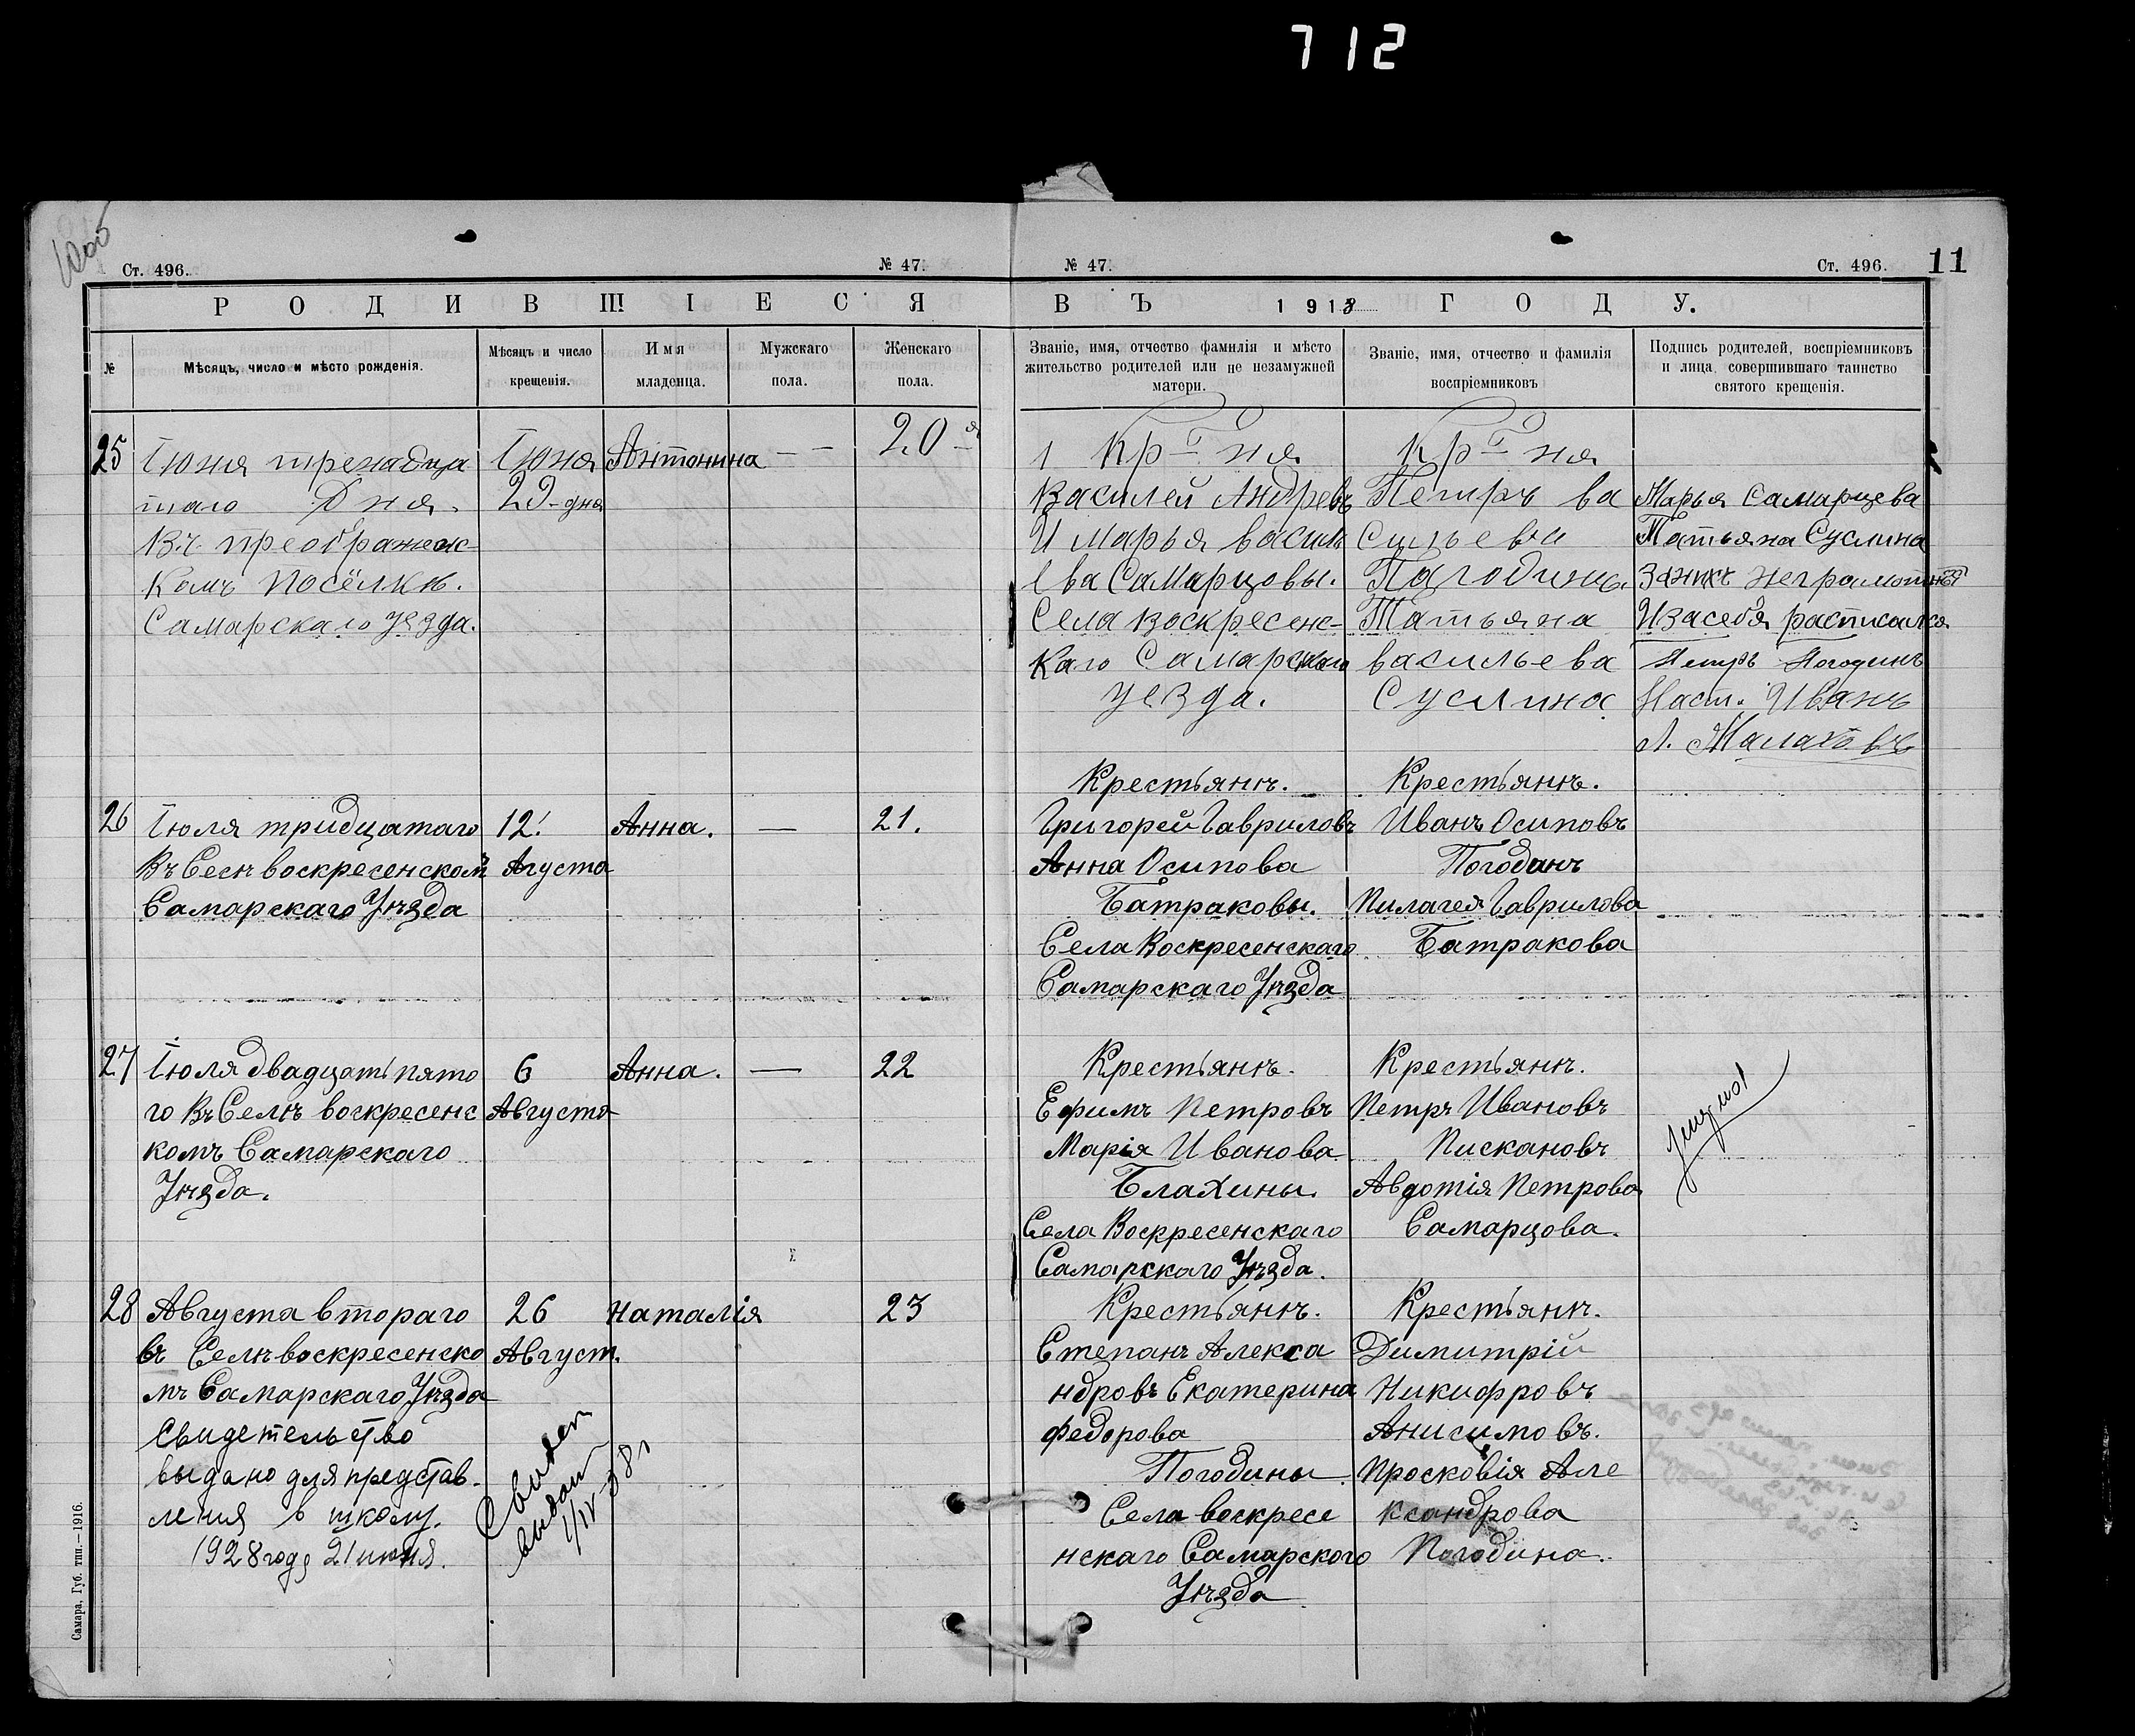 712
Ст. 496.
№ 47.
№ 47.
Ст. 496.
11
РОДИВШІЕСЯ
ВЪ 1918 ГОДУ.
№
Мѣсяцъ, число и мѣсто рожденія.
Мѣсяцъ и число
крещенія.
Имя
младенца.
Мужскаго
пола.
Женскаго
пола.
Званіе, имя, отчество фамилія и мѣсто
жительство родителей или не незамужней
матери.
Званіе, имя, отчество и фамилія
воспріемниковъ
Подпись родителей, воспріемниковъ
и лица совершившаго таинство
святого крещенія.
25
Іюня тренадца
таго Дня.
Въ преображенс-
комъ посёлкѣ.
Самарскаго уезда.
Іюня
29-дня
Антонина
— —
20-я
1 Кр-т ня
Василей Андревъ
И Марья василь
ева Самарцовы.
Села Воскресенс-
каго Самарскаго
уезда.
Кр-т ня
Петръ ва
сильеви
Пагодинъ
Татьяна
васильева
Суслина
Марья Самарцева
Татьяна Суслина
За нихъ неграмотныя
И за себя расписался
Петръ Погодинъ
Наст. Иванъ
Л. Малаховъ
26
Іюля тридцатаго
Въ Селѣ воскресенскомъ
Самарскаго Уѣзда
12.
Августа
Анна.
—
21.
Крестьянѣ.
Григорей Гавриловъ
Анна Осипова
Батраковы.
Села Воскресенскаго
Самарскаго Уѣзда
Крестьянѣ.
Иванъ Осиповъ
Погодинъ
Пилагея Гаврилова
Батракова
27
Іюля двадцать пято
го Въ Селѣ воскресенс
комъ Самарскаго
Уѣзда.
6
Августа
Анна.
—
22
Крестьянѣ.
Ефимъ Петровъ
Марія Иванова
Блахины.
Села Воскресенскаго
Самарскаго Уѣзда.
Крестьянѣ.
Петръ Ивановъ
Пискановъ
Авдотія Петрова
Самарцова.
28
Августа втораго
въ Селѣ воскресенско
мъ Самарскаго Уѣзда
Свидетельство
выдано для представ-
ления в школу.
1928 года 21 июня.
26
Август.
Свидет
выдан
1/IV-38 г
Наталія
23
Крестьянѣ.
Степанъ Алекса
ндровъ Екатерина
Федорова
Погодины.
Села воскресе
нскаго Самарского
Уѣзда
Крестьянѣ.
Димитрій
Никифровъ
Анисимовъ.
Просковія Але
ксандрова
Погодина.
Самара, Губ. тип.—1916.